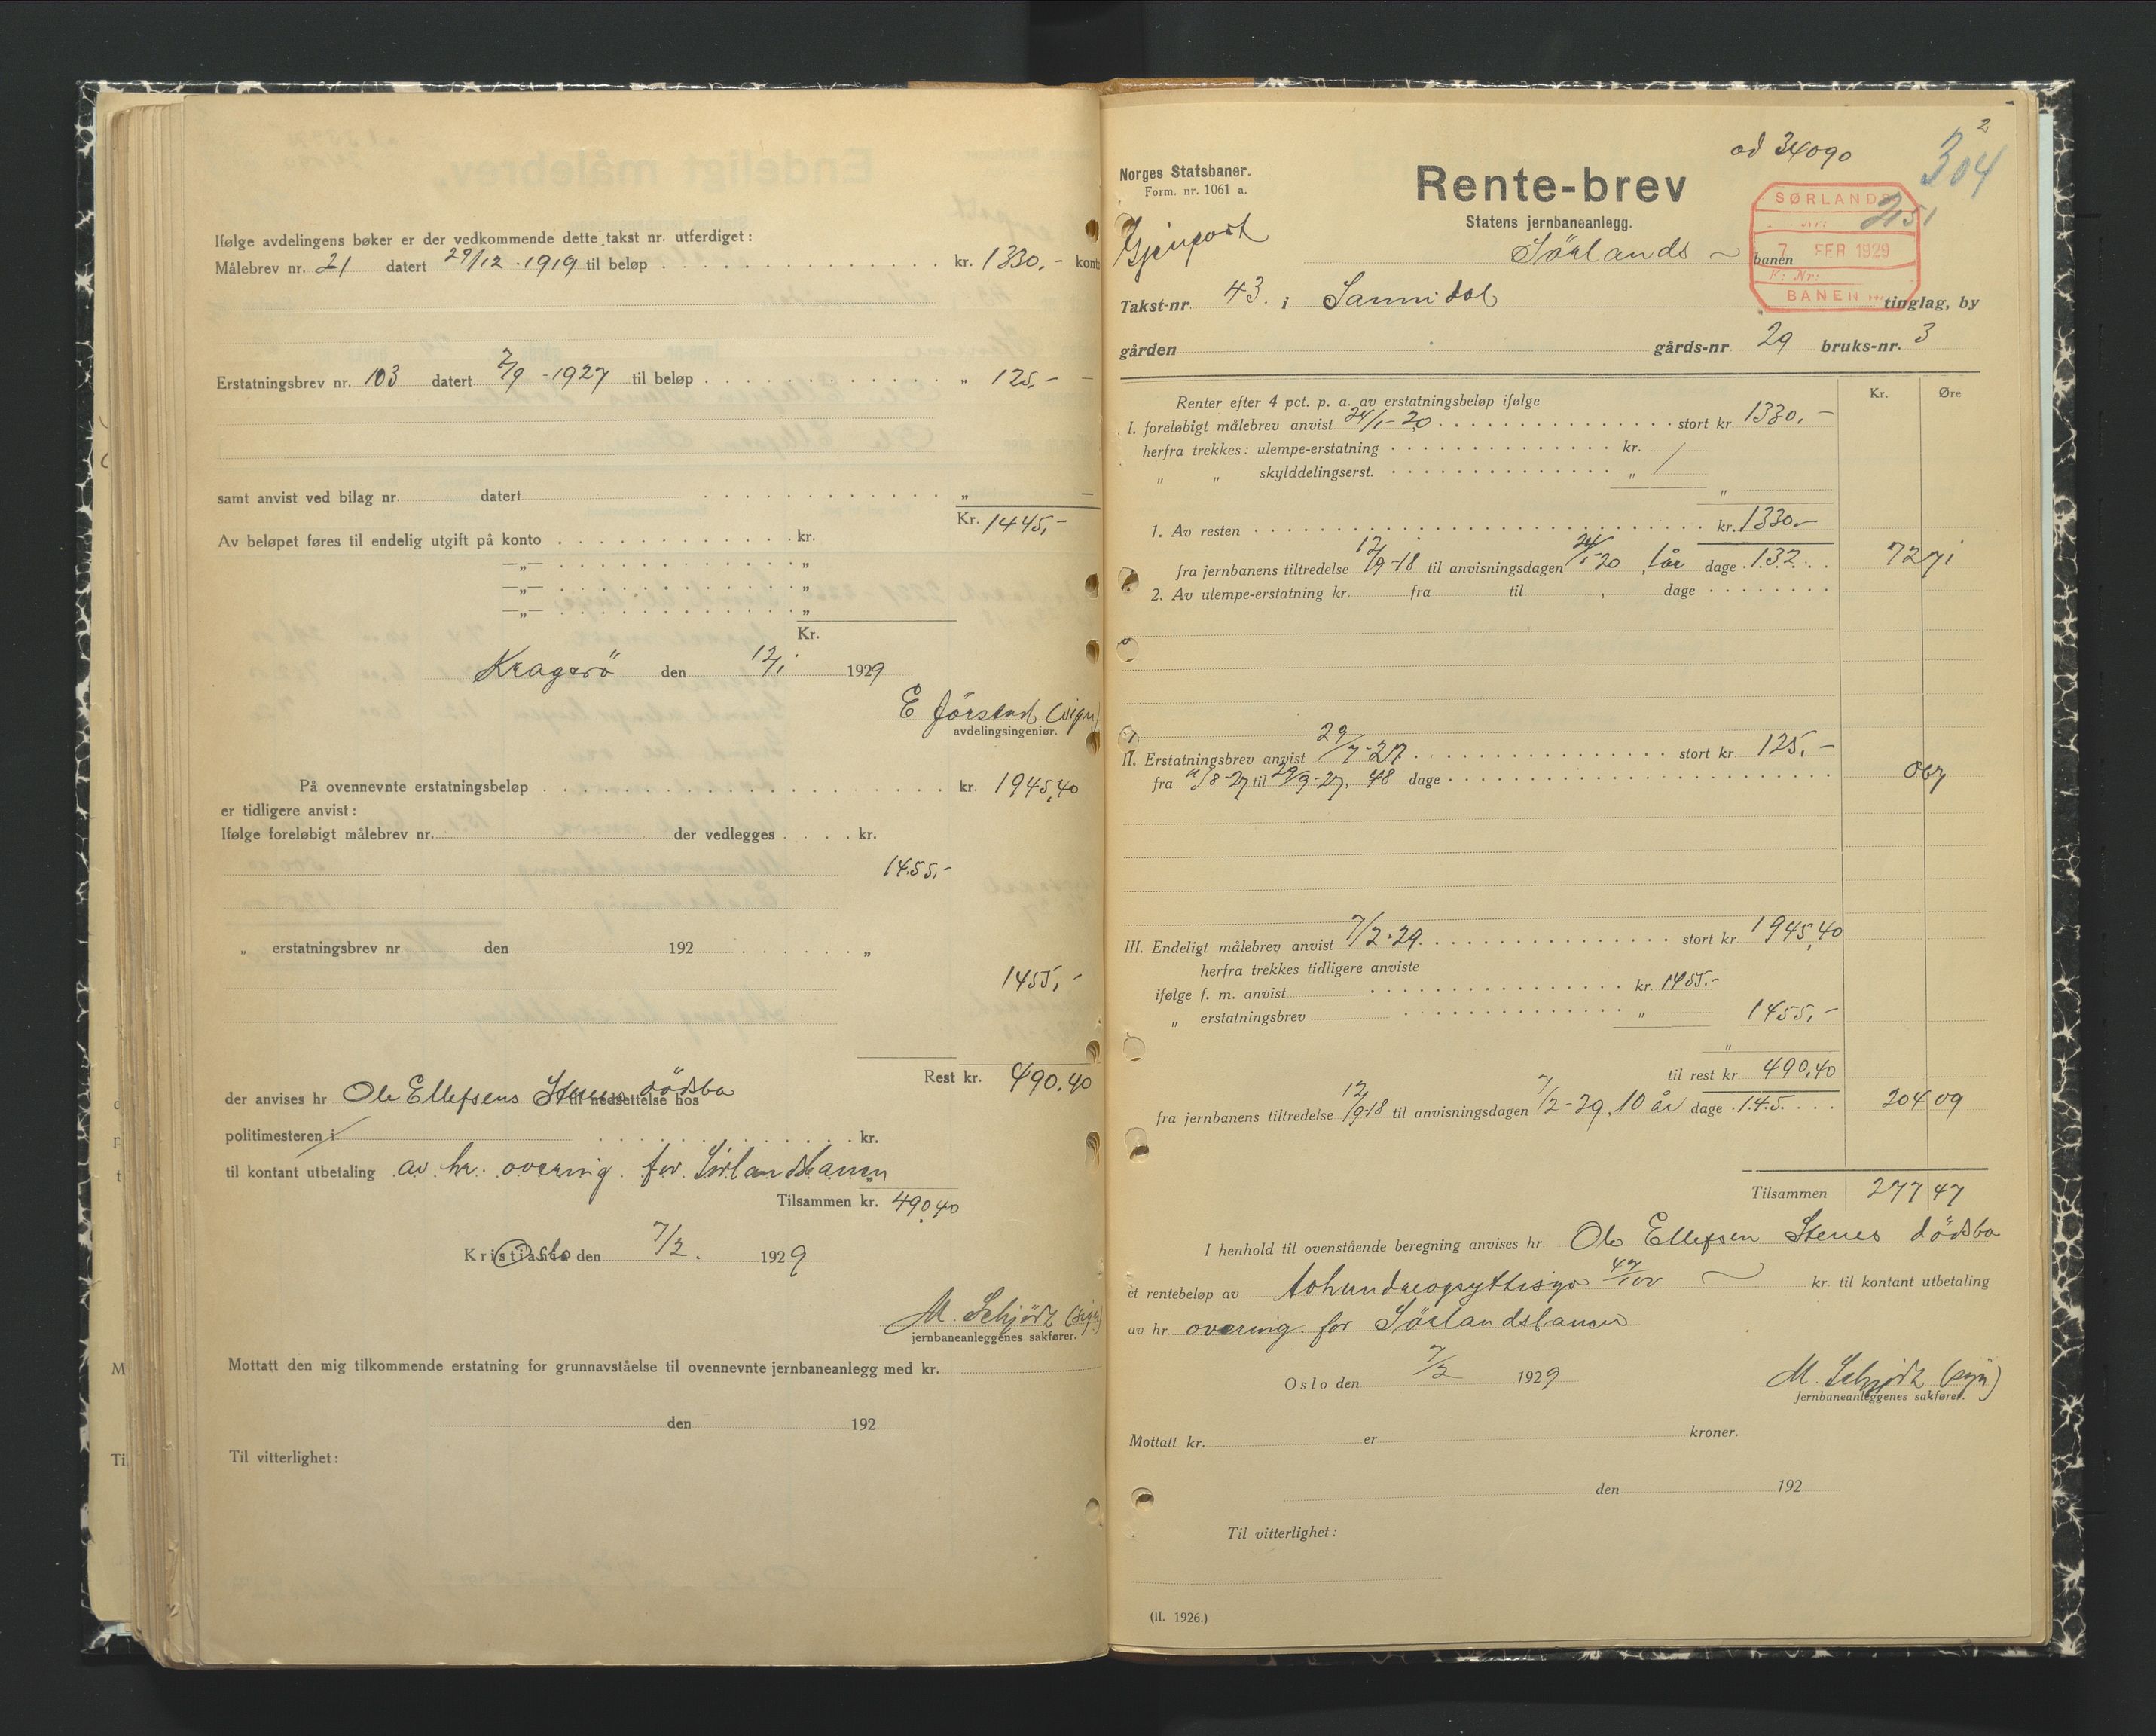 Ifølge avdelingens bøker er der vedkommende dette takst nr. utferdiget:
Målebrev nr. 21 datert 29/12 - 1919 til beløp kr. 1330,- konto
Erstatningsbrev nr. 103 datert 2/9 - 1927 til beløp „ 125,- -
samt anvist ved bilag nr. datert „ -
Kr. 1445,-
Av beløpet føres til endelig utgift på konto kr.
—„— „
—„— „
—„— „
Kr.
Kragerö den 12/1 1929
E Jörstad (sign)
avdelingsingeniør.
På ovennevnte erstatningsbeløp kr. 1945,40
er tidligere anvist:
Ifølge foreløbigt målebrev nr. der vedlegges kr.
1455,-
„ erstatningsbrev nr. den 192 „
1455,-
Rest kr. 490.40
der anvises hr Ole Ellefsens Stenes dödsbo til nedsettelse hos
politimesteren i kr.
til kontant utbetaling av hr. overing. for Sörlandsbanen „
Tilsammen kr. 490,40
Kristiania Oslo den 7/2. 1929
M. Schjödt (sign)
jernbaneanleggenes sakfører.
Mottatt den mig tilkommende erstatning for grunnavståelse til ovennevnte jernbaneanlegg med kr.
den 192
Til vitterlighet:
ad 34090
2
304
Norges Statsbaner.
Form. nr. 1061 a.
Rente-brev
Statens jernbaneanlegg.
SØRLANDS
251
7 FEB 1929
F: Nr:
BANEN
Gjenpart
Sörlands banen
Takst-nr. 43. i Sannidal tinglag, by
gården gårds-nr. 29 bruks-nr. 3
Kr. Øre
Renter efter 4 pct. p. a. av erstatningsbeløp ifølge
I. foreløbigt målebrev anvist 24/1-20 stort kr. 1330,-
herfra trekkes: ulempe-erstatning kr. /
„ „ skylddelingserst. „ /
„ „
1. Av resten kr. 1330.-
fra jernbanens tiltredelse 12/9-18 til anvisningsdagen 24/1-20, 1 år dage 132 72 71
2. Av ulempe-erstatning kr. fra til , dage
II. Erstatningsbrev anvist 29/7-27 stort kr. 125,-
fra 11/8-27 til 29/9-27, 48 dage 0 67
III. Endeligt målebrev anvist 7/2-29. stort kr. 1945,40
herfra trekkes tidligere anviste
ifølge f. m. anvist kr. 1455.-
„ erstatningsbrev „ 1455,-
„
til rest kr. 490,40
fra jernbanens tiltredelse 12/9-18 til anvisningsdagen 7/2-29, 10 år dage 145 204 09
Tilsammen 277 47
I henhold til ovenstående beregning anvises hr. Ole Ellefsen Stenes dödsbo
et rentebeløp av tohundreogsyttisyv 47/100 kr. til kontant utbetaling
av hr overing. for Sörlandsbanen
Oslo den 7/2 1929
M. Schjödt (sign)
jernbaneanleggenes sakfører.
Mottatt kr. er kroner.
den 192
Til vitterlighet:
(II. 1926.)